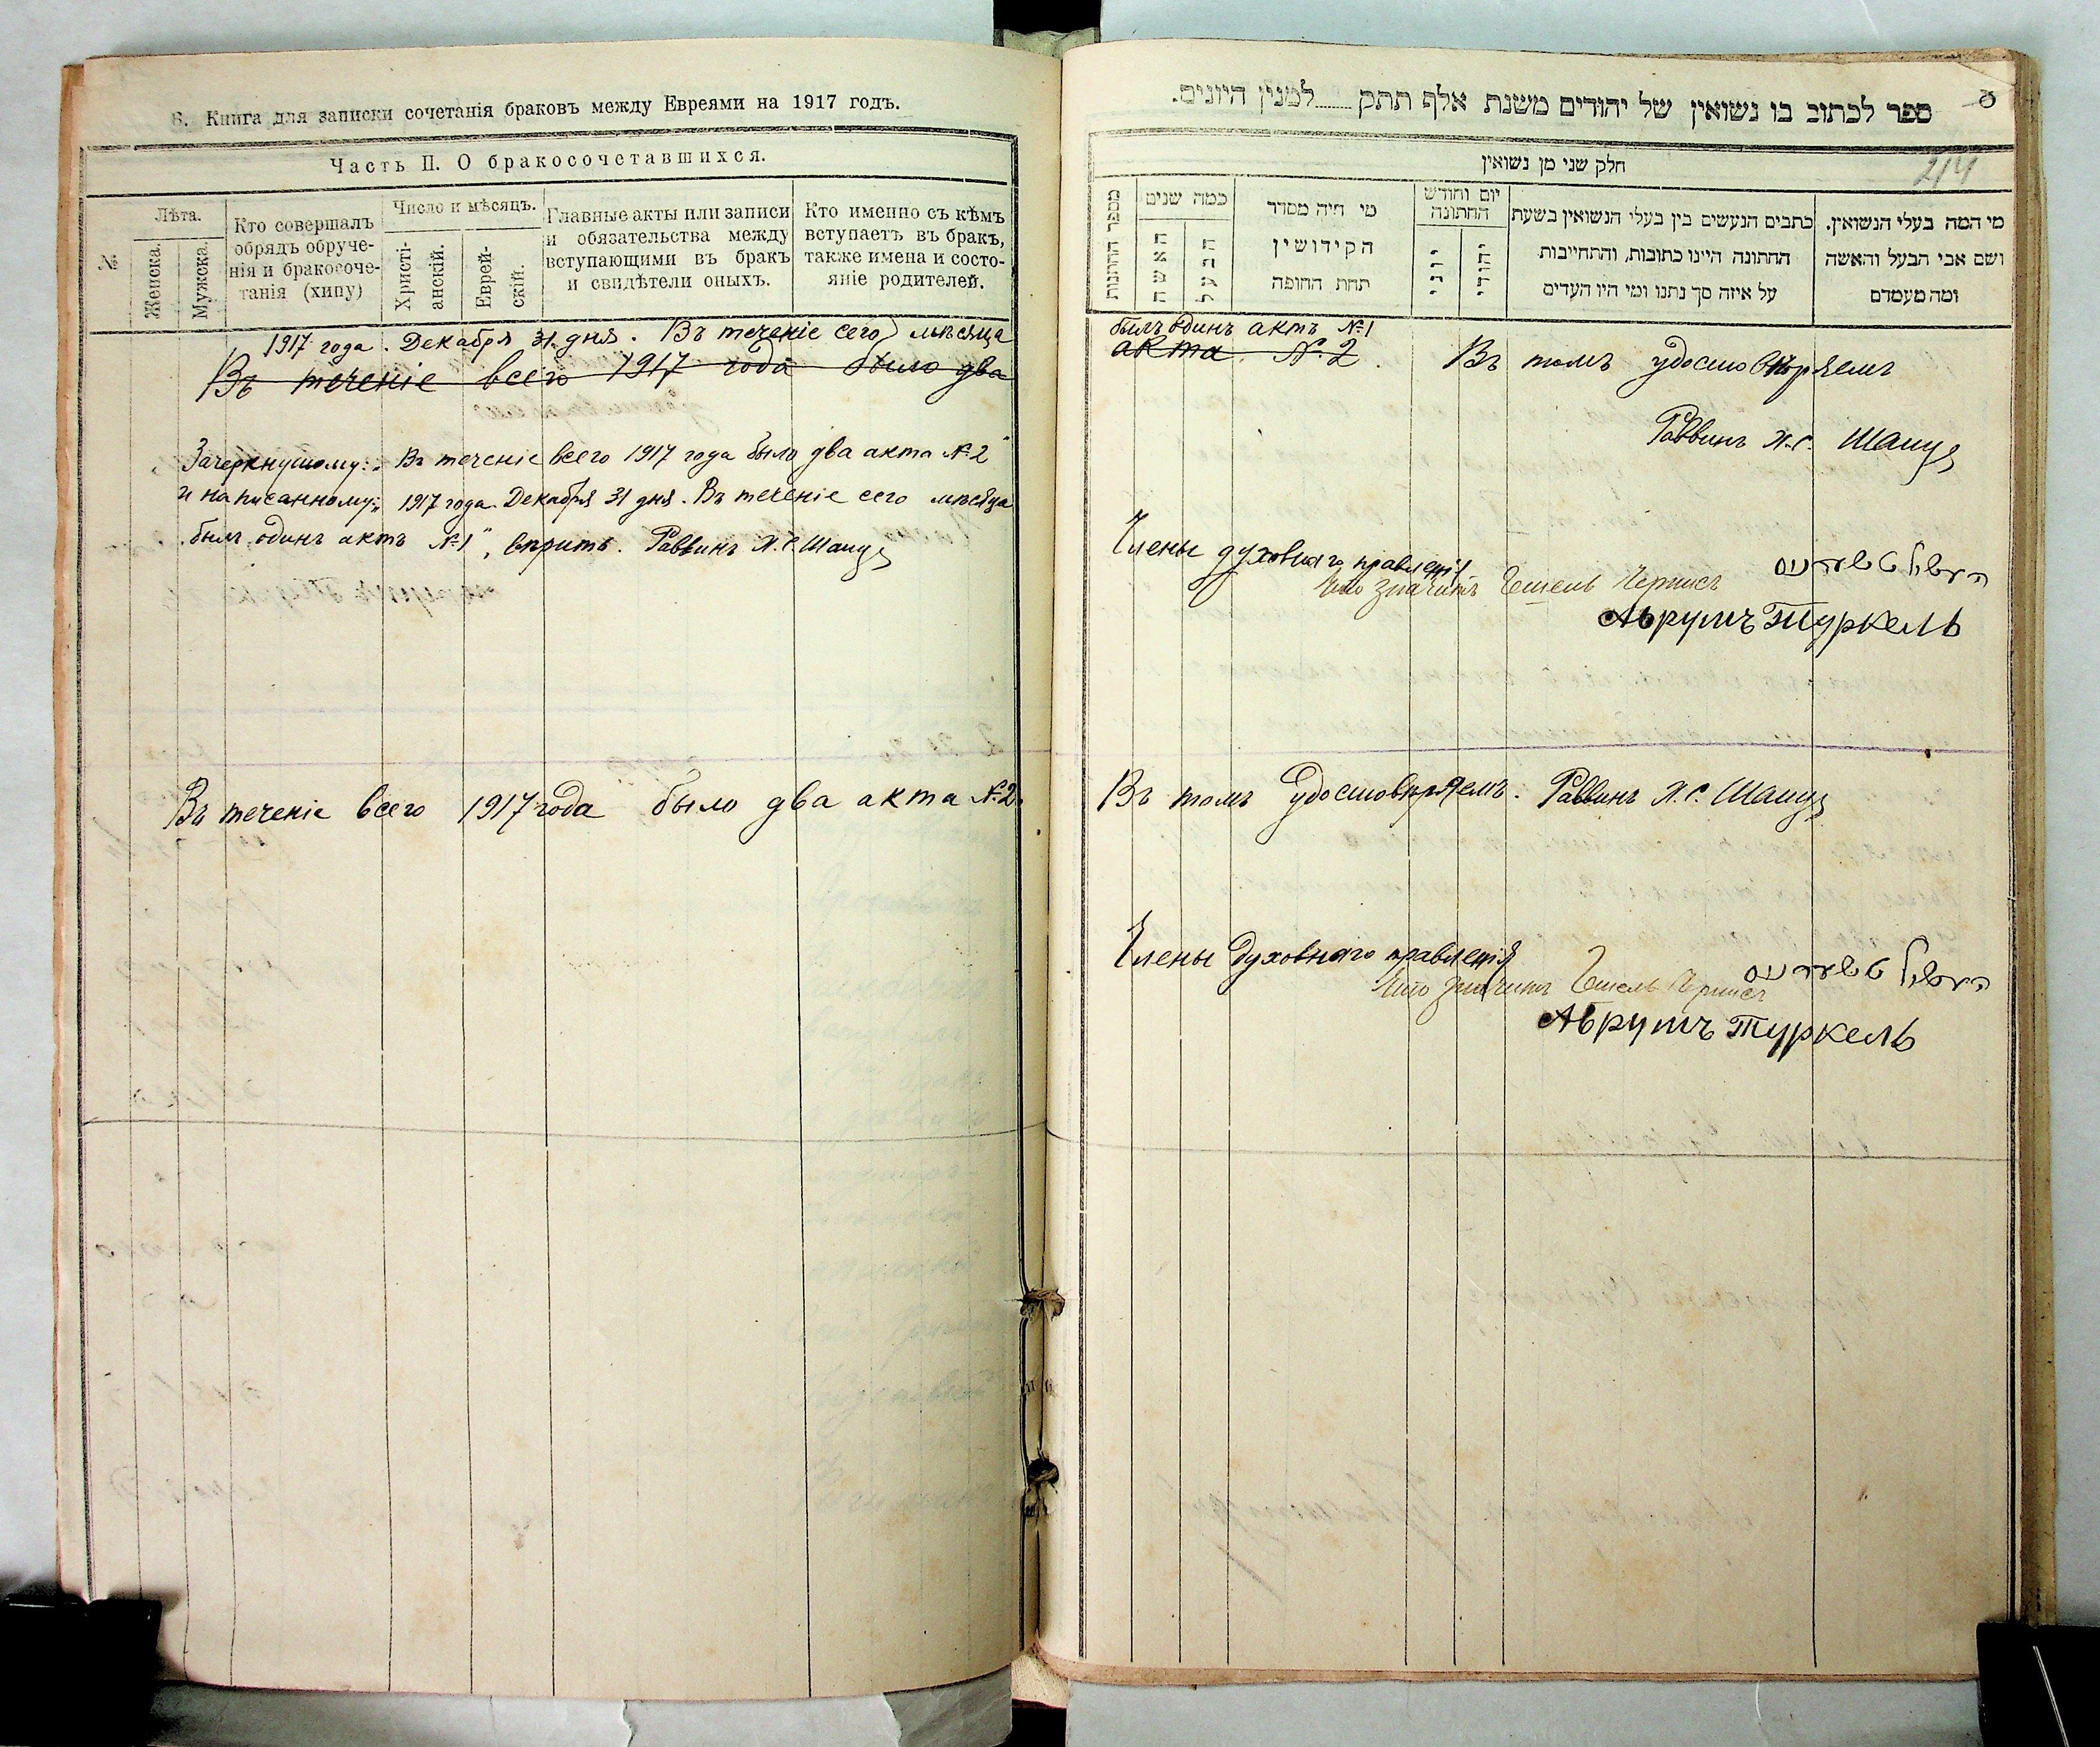 8. Книга для записки сочетанія браковъ между Евреями на 1917 годъ.
Часть II. О бракосочетавшихся.
№
Лѣта.
Женска.
Мужска.
Кто совершалъ
обрядъ обруче-
нія и бракосоче-
танія (хипу)
Число и мѣсяцъ.
Христі-
анскій.
Еврей-
скій.
Главные акты или записи
и обязательства между
вступающими въ бракъ
и свидѣтели оныхъ.
Кто именно съ кѣмъ
вступаетъ въ бракъ,
также имена и состо-
яніе родителей.
1917 года. Декабря 31 дня. Въ теченіе сего мѣсяца
Въ теченіе всего 1917 года было два
Зачеркнутому: „Въ теченіе всего 1917 года было два акта №2"
и написанному: „1917 года. Декабря 31 дня. Въ теченіе сего мѣсяца
былъ одинъ актъ №1", вѣрить. Раввинъ Х.С. Шапу
Въ теченіе всего 1917 года было два акта №2.
ספר לכתוב בו נשואין של יהודים משנת אלף תתק למנין היונים.
8
214
חלק שני מן נשואין
מספר החתונות
כמה שנים
האשה
הבעל
מי היה מסדר
הקידושין
תחת החופה
יום וחודש
החתונה
יוני
יהודי
כתבים הנעשים בין בעלי הנשואין בשעת
החתונה היינו כתובות, והתחייבות
על איזה סך נתנו ומי היו העדים
מי המה בעלי הנשואין.
ושם אבי הבעל והאשה
ומה מעמדם
былъ одинъ актъ №1
акта №2. Въ томъ удостовѣряемъ
Раввинъ Х.С.
Члены духовнаго правленія
что значитъ Гешель
Аврумъ Туркель
Въ томъ удостовѣряемъ. Раввинъ Х.С.
Члены духовнаго правленія
что значитъ Гешель
Аврумъ Туркель